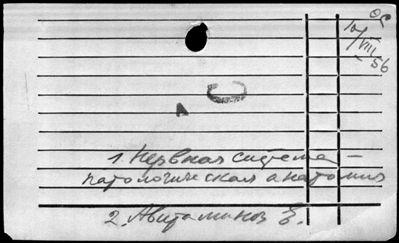 10/VIII 56
1. Нервная система –
патологическая анатомия
2. Авитаминоз Е.